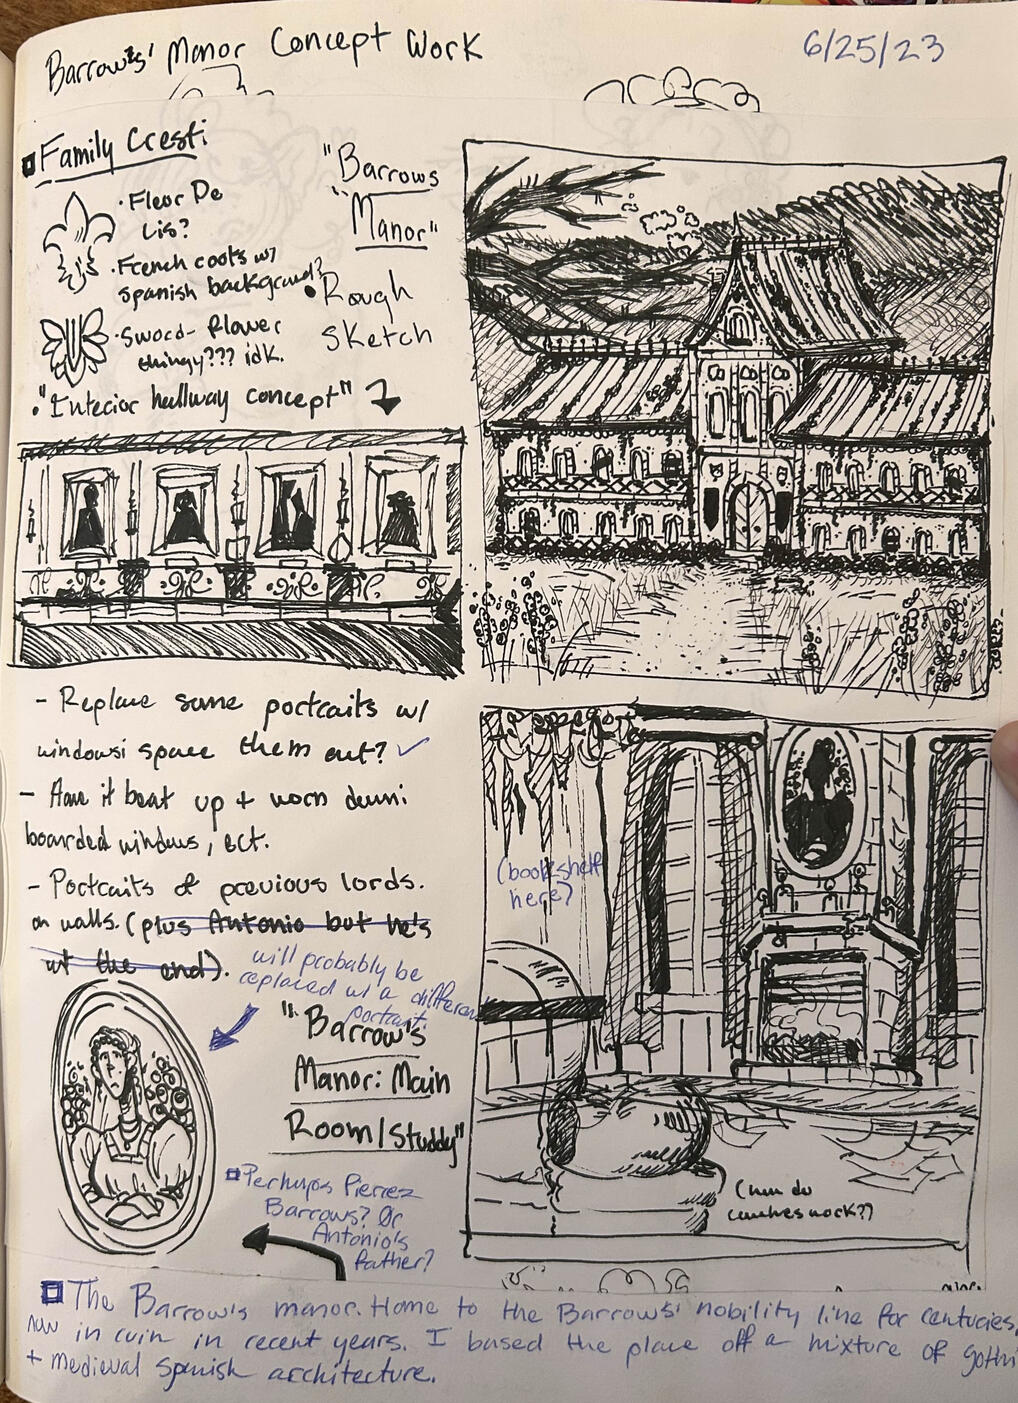 Barrow's' Manor Concept Work
6/25/23
Family Crest:
• Fleur De
Lis?
• French roots w/
Spanish background?
• Sword-flower
thingy??? idk.
"Barrows
Manor"
• Rough
Sketch
• "Interior hallway concept"
- Replace some portraits w/
windows; space them out? ✓
- Have it beat up + worn down;
boarded windows, ect.
- Portraits of previous lords.
on walls. (plus Antonio but he's
at the end).
will probably be
replaced w/ a different
portrait.
"Barrow's
Manor: Main
Room/Studdy"
(bookshelf
here?)
Perhaps Pierrez
Barrows? Or
Antonio's
father?
(how do
couches work??)
The Barrow's manor. Home to the Barrows' nobility line for centuries,
now in ruin in recent years. I based the place off a mixture of gothi
+ medieval Spanish architecture.